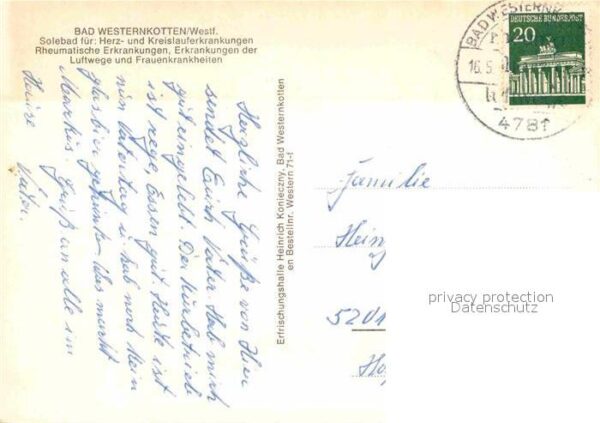 BAD WESTERNKOTTEN/Westf.
Solebad für: Herz- und Kreislauferkrankungen
Rheumatische Erkrankungen, Erkrankungen der
Luftwege und Frauenkrankheiten
Herzliche Grüße von Hier
sendet Euch Vater. Hab mich
gut eingelebt. Der Kurbetrieb
ist rege, Essen gut. Heute ist
nun Vatertag u. hab noch kein
Glas Bier getrunken. Was macht
Markus. Gruß an alle im
Hause
Vater.
Erfrischungshalle Heinrich Konieczny, Bad Westernkotten
en Bestellnr. Western 71-f
DEUTSCHE BUNDESPOST
20
BAD WESTERN
16.5.
4781
Familie
Hein
520
Ho
privacy protection
Datenschutz